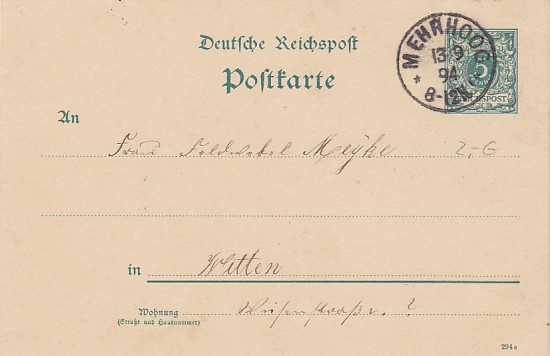 Deutsche Reichspost
Postkarte
MEHRHOOG
13 9
94
* 8-12N.
5
REICHSPOST
An
Frau Feldwebel Meyke 2,-€
in Witten
Wohnung Wiesenstraße. ?
(Straße und Hausnummer)
294a